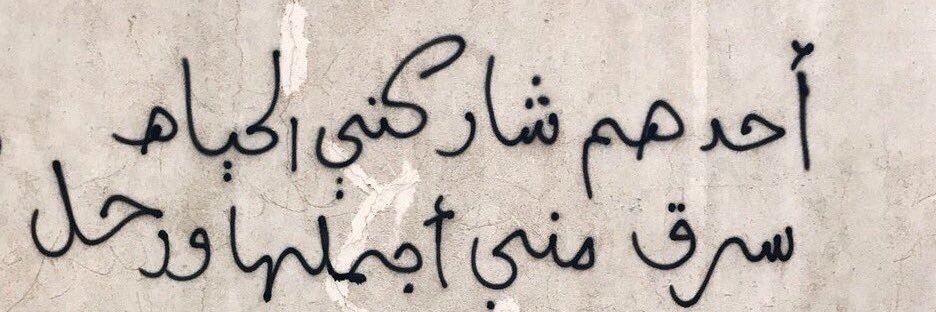 أحدهم شاركني الحياه
سرق مني أجملها ورحل